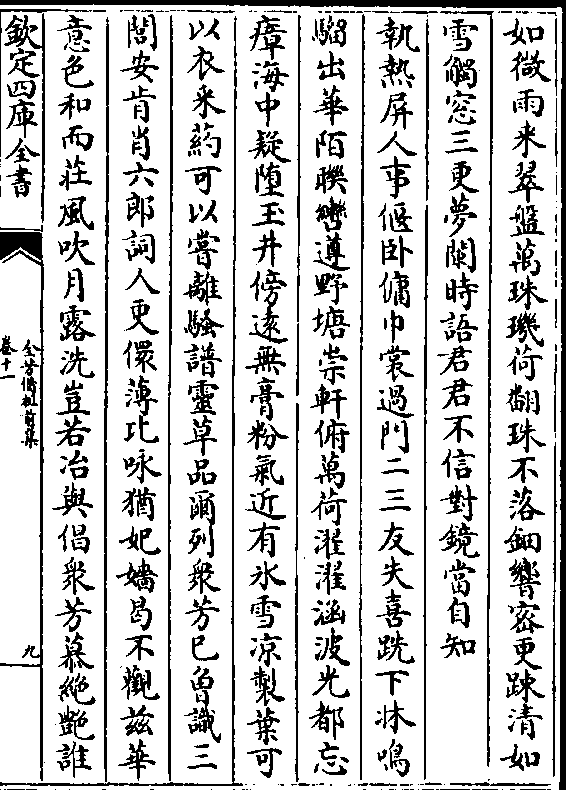 如微雨来翠盤萬珠璣荷翻珠不落細響密更踈清如
雪觸窓三更夢闌時語君君不信對鏡當自知
執熱屏人事偃卧傭巾裳過門二三友失喜跣下牀鳴
騶出華陌聨轡遵野塘崇軒俯萬荷濯濯涵波光都忘
瘴海中疑堕玉井傍遠無膏粉氣近有氷雪凉製葉可
以衣采药可以嘗離騷譜靈草品爾列衆芳已魯識三
閭安肯肖六郎詞人更儇薄比咏猶妃嬙曷不觀兹華
意色和而莊風吹月露洗豈若冶與倡衆芳慕絶艶誰
欽定四庫全書
全芳備祖前集
卷十一
九